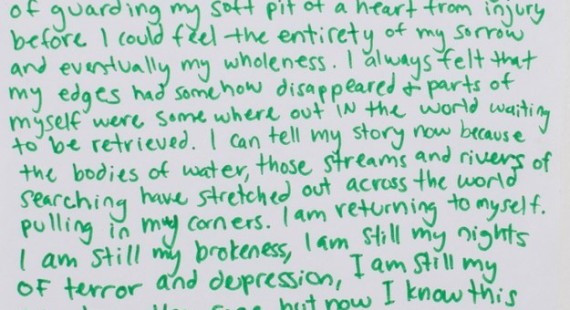 of guarding my soft pit of a heart from injury
before I could feel the entirety of my sorrow
and eventually my wholeness. I always felt that
my edges had somehow disappeared & parts of
myself were some where out IN the world waiting
to be retrieved. I can tell my story now because
the bodies of water, those streams and rivers of
searching have stretched out across the world
pulling in my corners. I am returning to myself.
I am still my brokeness, I am still my nights
OF terror and depression, I am still my
but now I know this